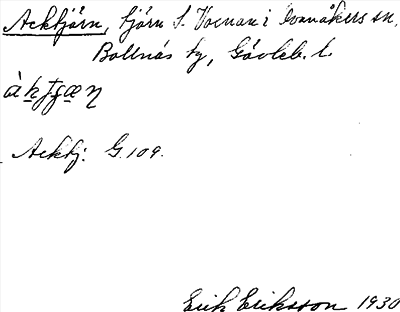 Acktjärn, tjärn S. Voxnan i Ovanåkers sn,
Bollnäs tg, Gävleb. l.
Acktj: G.109.
Erik Eriksson 1930